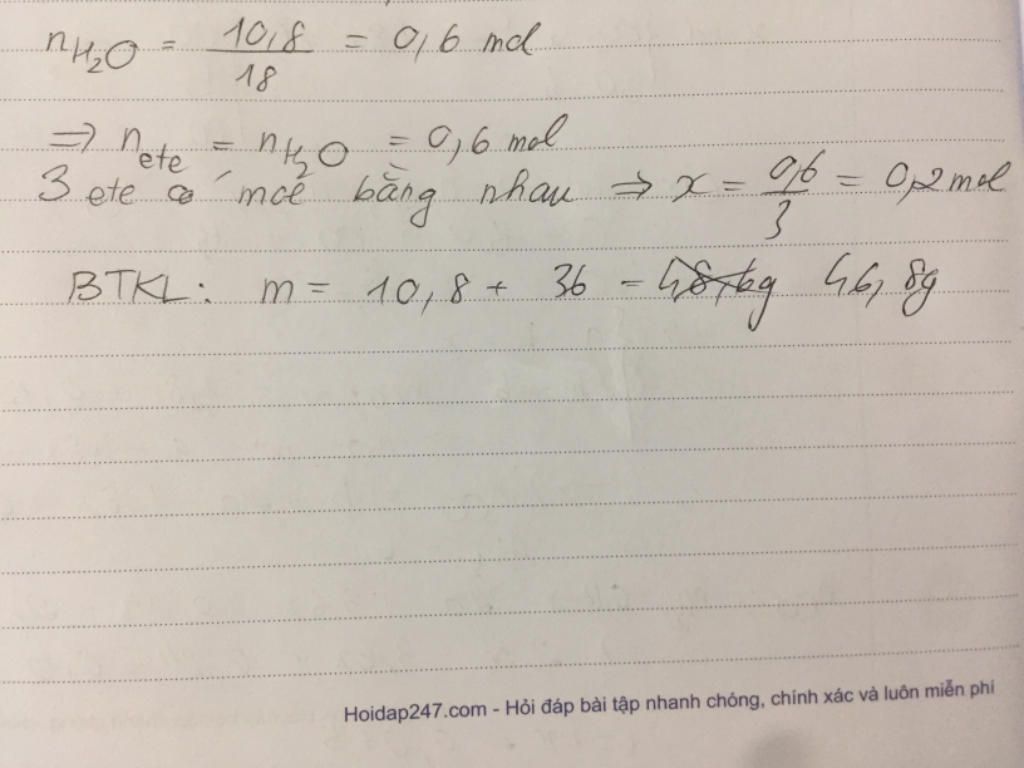 nH₂O = 10,8 / 18 = 0,6 mol
⇒ n ete = nH₂O = 0,6 mol
3 ete có mol bằng nhau ⇒ x = 0,6 / 3 = 0,2 mol
BTKL: m = 10,8 + 36 = 48,6g 46,8g
Hoidap247.com - Hỏi đáp bài tập nhanh chóng, chính xác và luôn miễn phí